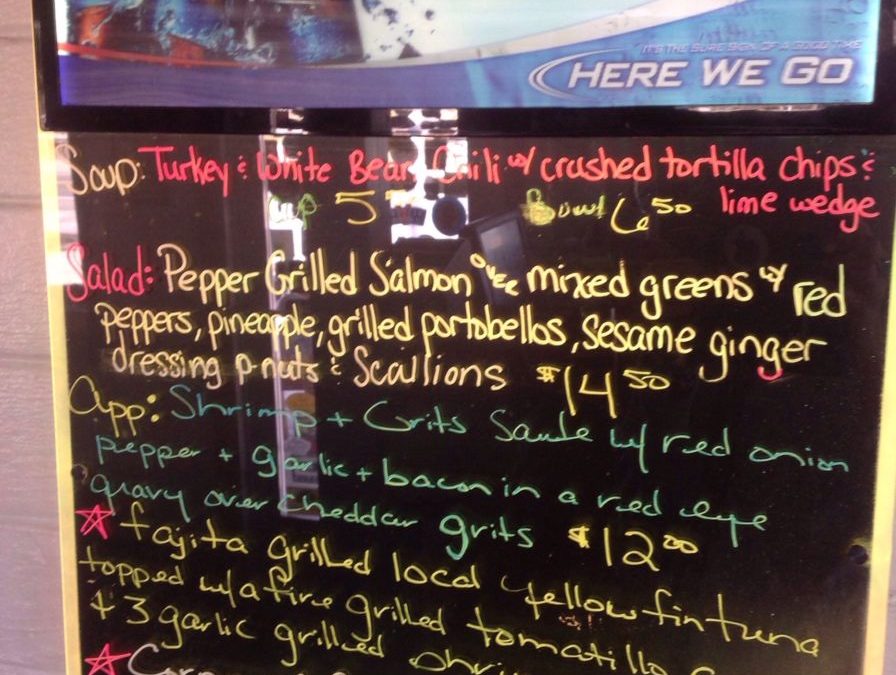 IT'S THE SURE SIGN OF A GOOD TIME
HERE WE GO
Soup: Turkey & White Bean Chili w/ crushed tortilla chips &
cup 5 Bowl 6 50 lime wedge
Salad: Pepper Grilled Salmon over mixed greens w/ red
peppers, pineapple, grilled portobellos, sesame ginger
dressing p-nuts & Scallions $14 50
App: Shrimp + Grits Saute w/ red onion
pepper + garlic + bacon in a red eye
gravy over cheddar grits $12 00
fajita grilled local yellowfin tuna
topped w/ a fire grilled tomatillo
+ 3 garlic grilled